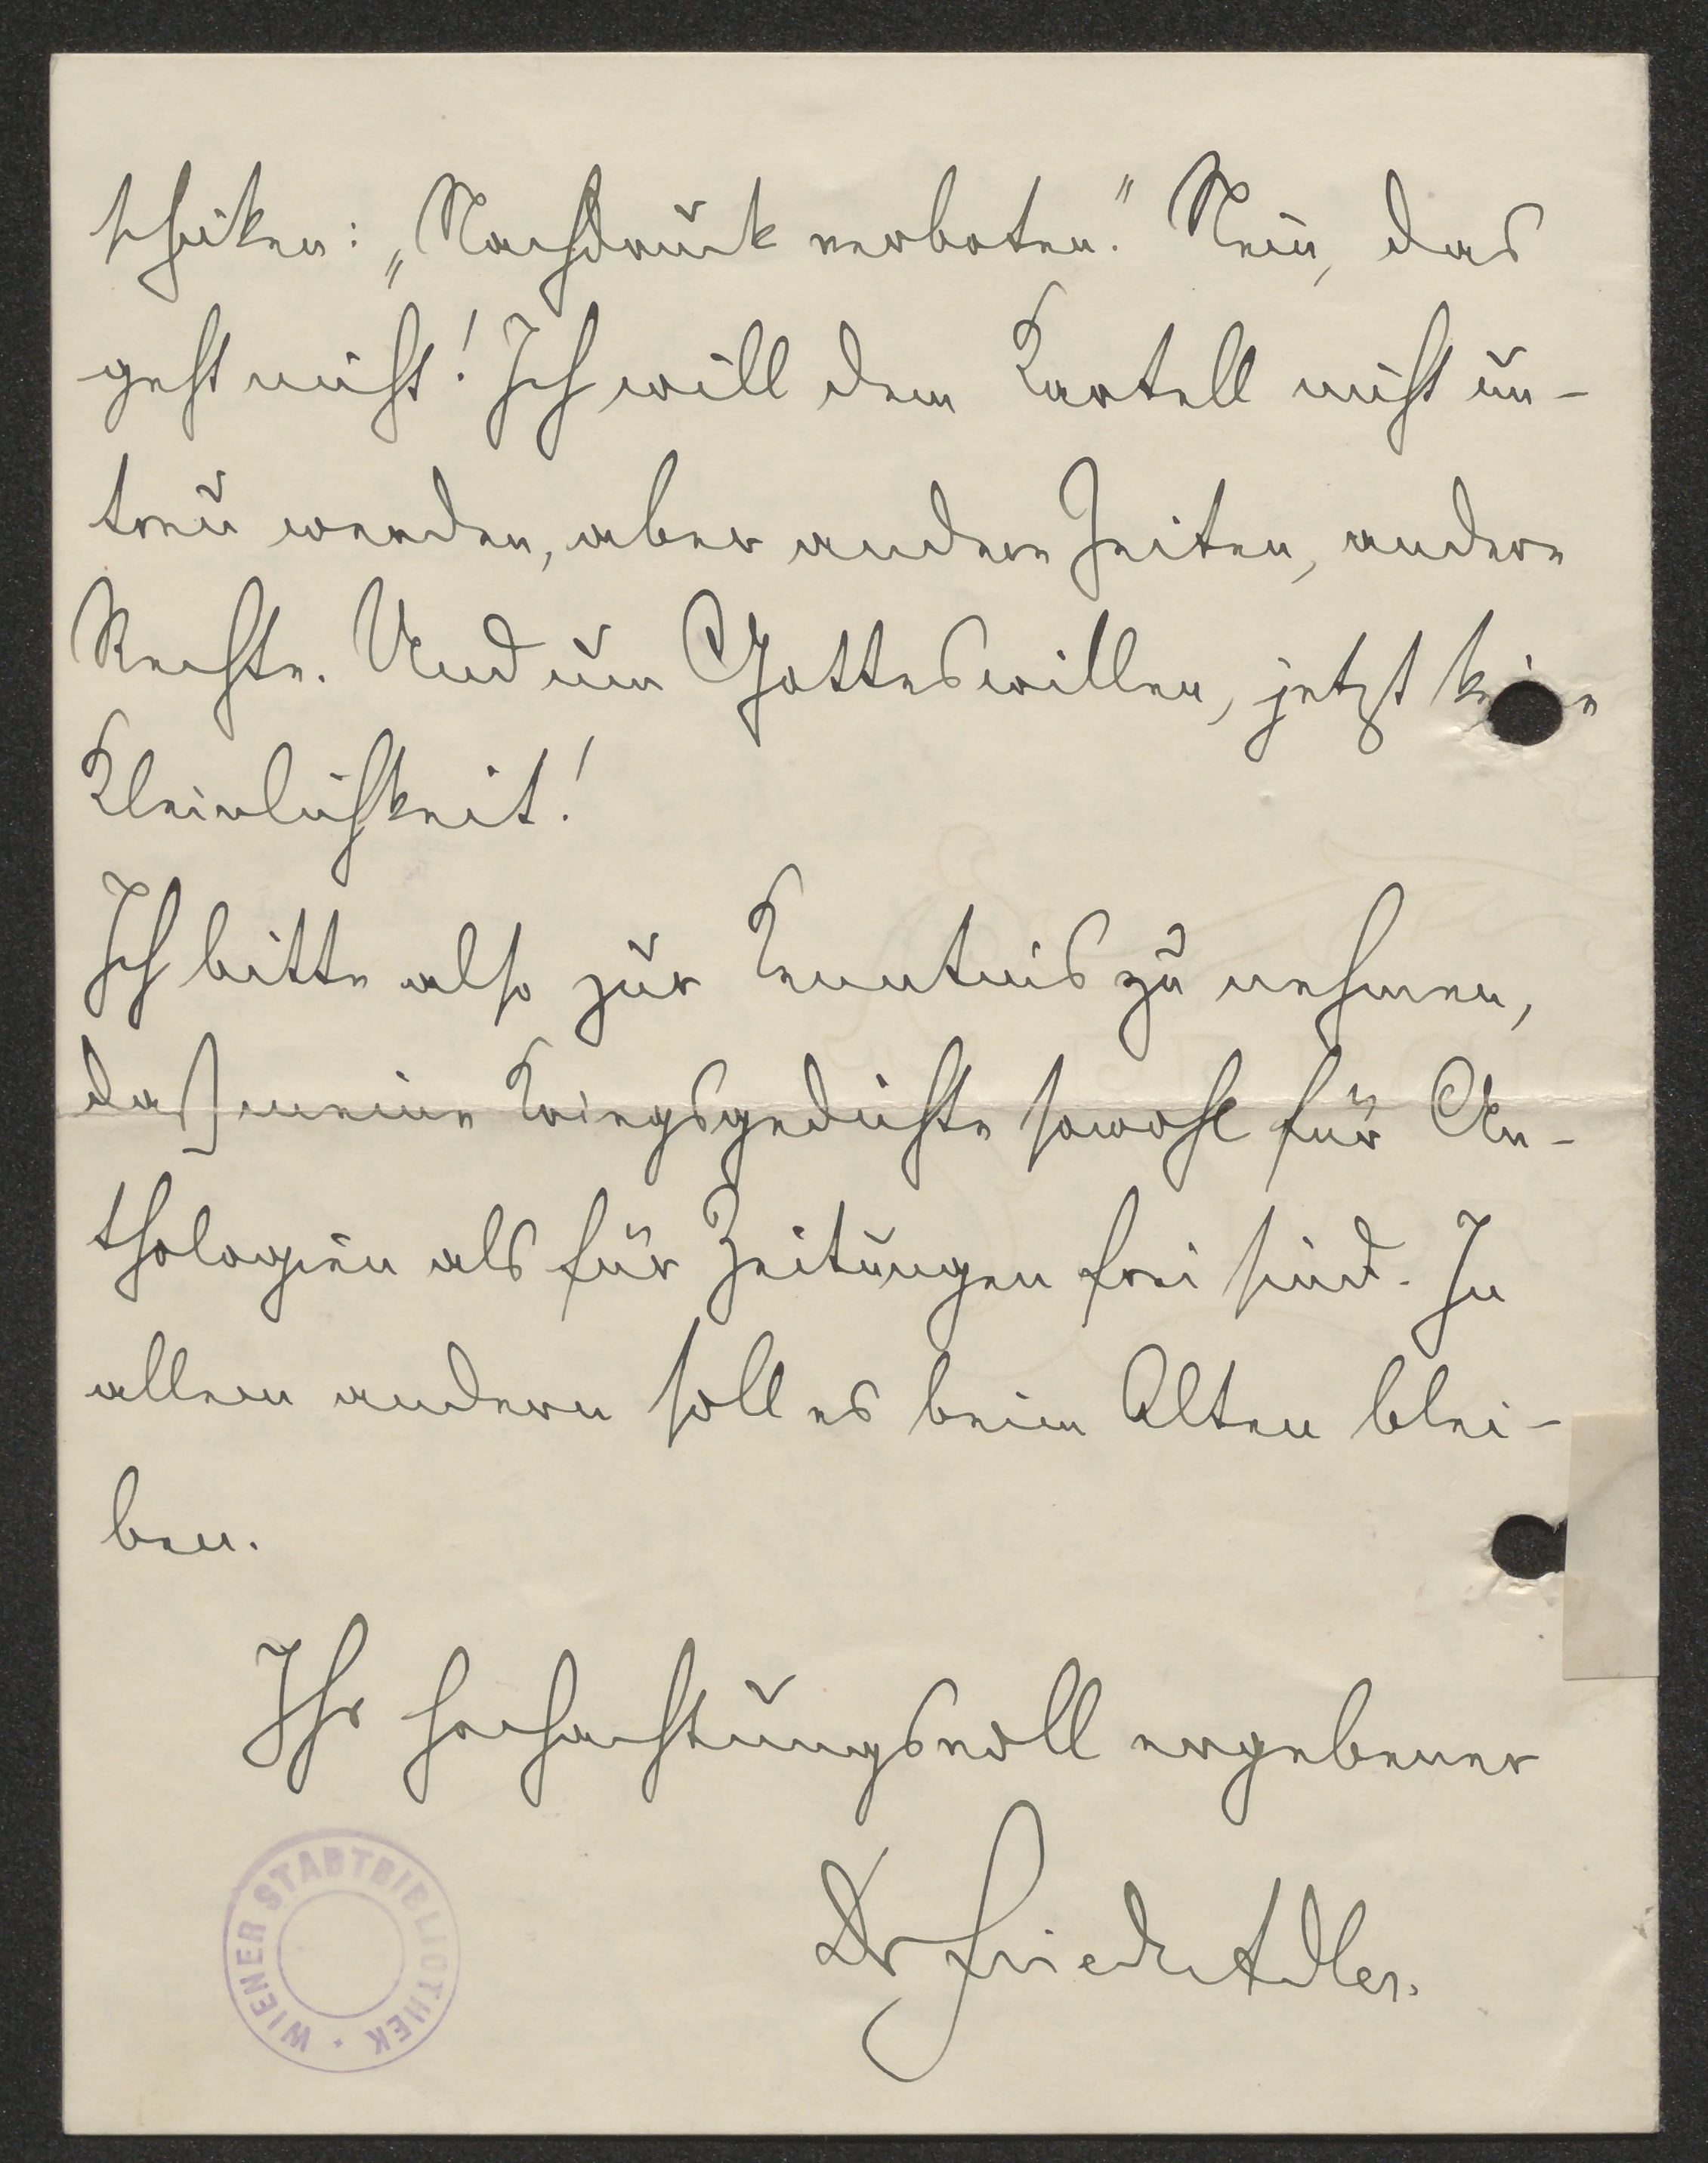 schicken: „Nachdruck verboten." Nein, das
geht nicht! Ich will dem Kartell nicht un-
treu werden, aber andere Zeiten, andere
Rechte. Und um Gotteswillen, jetzt keine
Kleinlichkeit!
Ich bitte also zur Kenntnis zu nehmen,
daß meine Kriegsgedichte sowohl für An-
thologien als für Zeitungen frei sind. In
allem andern soll es beim Alten blei-
ben.
Ihr hochachtungsvoll ergebener
Dr Friedr Adler.
WIENER STADTBIBLIOTHEK